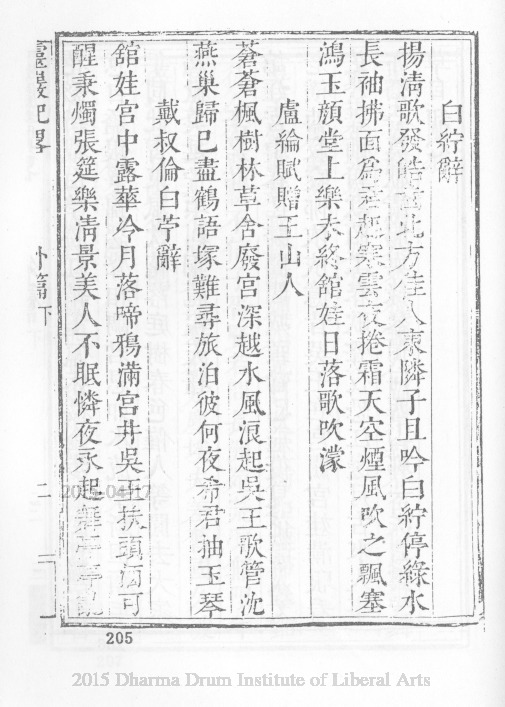 白紵辭
揚清歌發皓齒北方佳人東隣子且吟白紵停綠水
長袖拂面為君起寒雲夜捲霜天空煙風吹之飄塞
鴻玉顔堂上樂未終館娃日落歌吹濛
盧綸賦贈王山人
蒼蒼楓樹林草舍廢宮深越水風浪起吳王歌管沈
燕巢歸已盡鶴語塚難尋旅泊彼何夜希君抽玉琴
戴叔倫白苧辭
館娃宮中露華冷月落啼鴉滿宮井吳王扶頭酒可
醒秉燭張筵樂清景美人不眠憐夜永起舞亭亭亂
靈巖記畧 外篇下 二
205
2015 Dharma Drum Institute of Liberal Arts